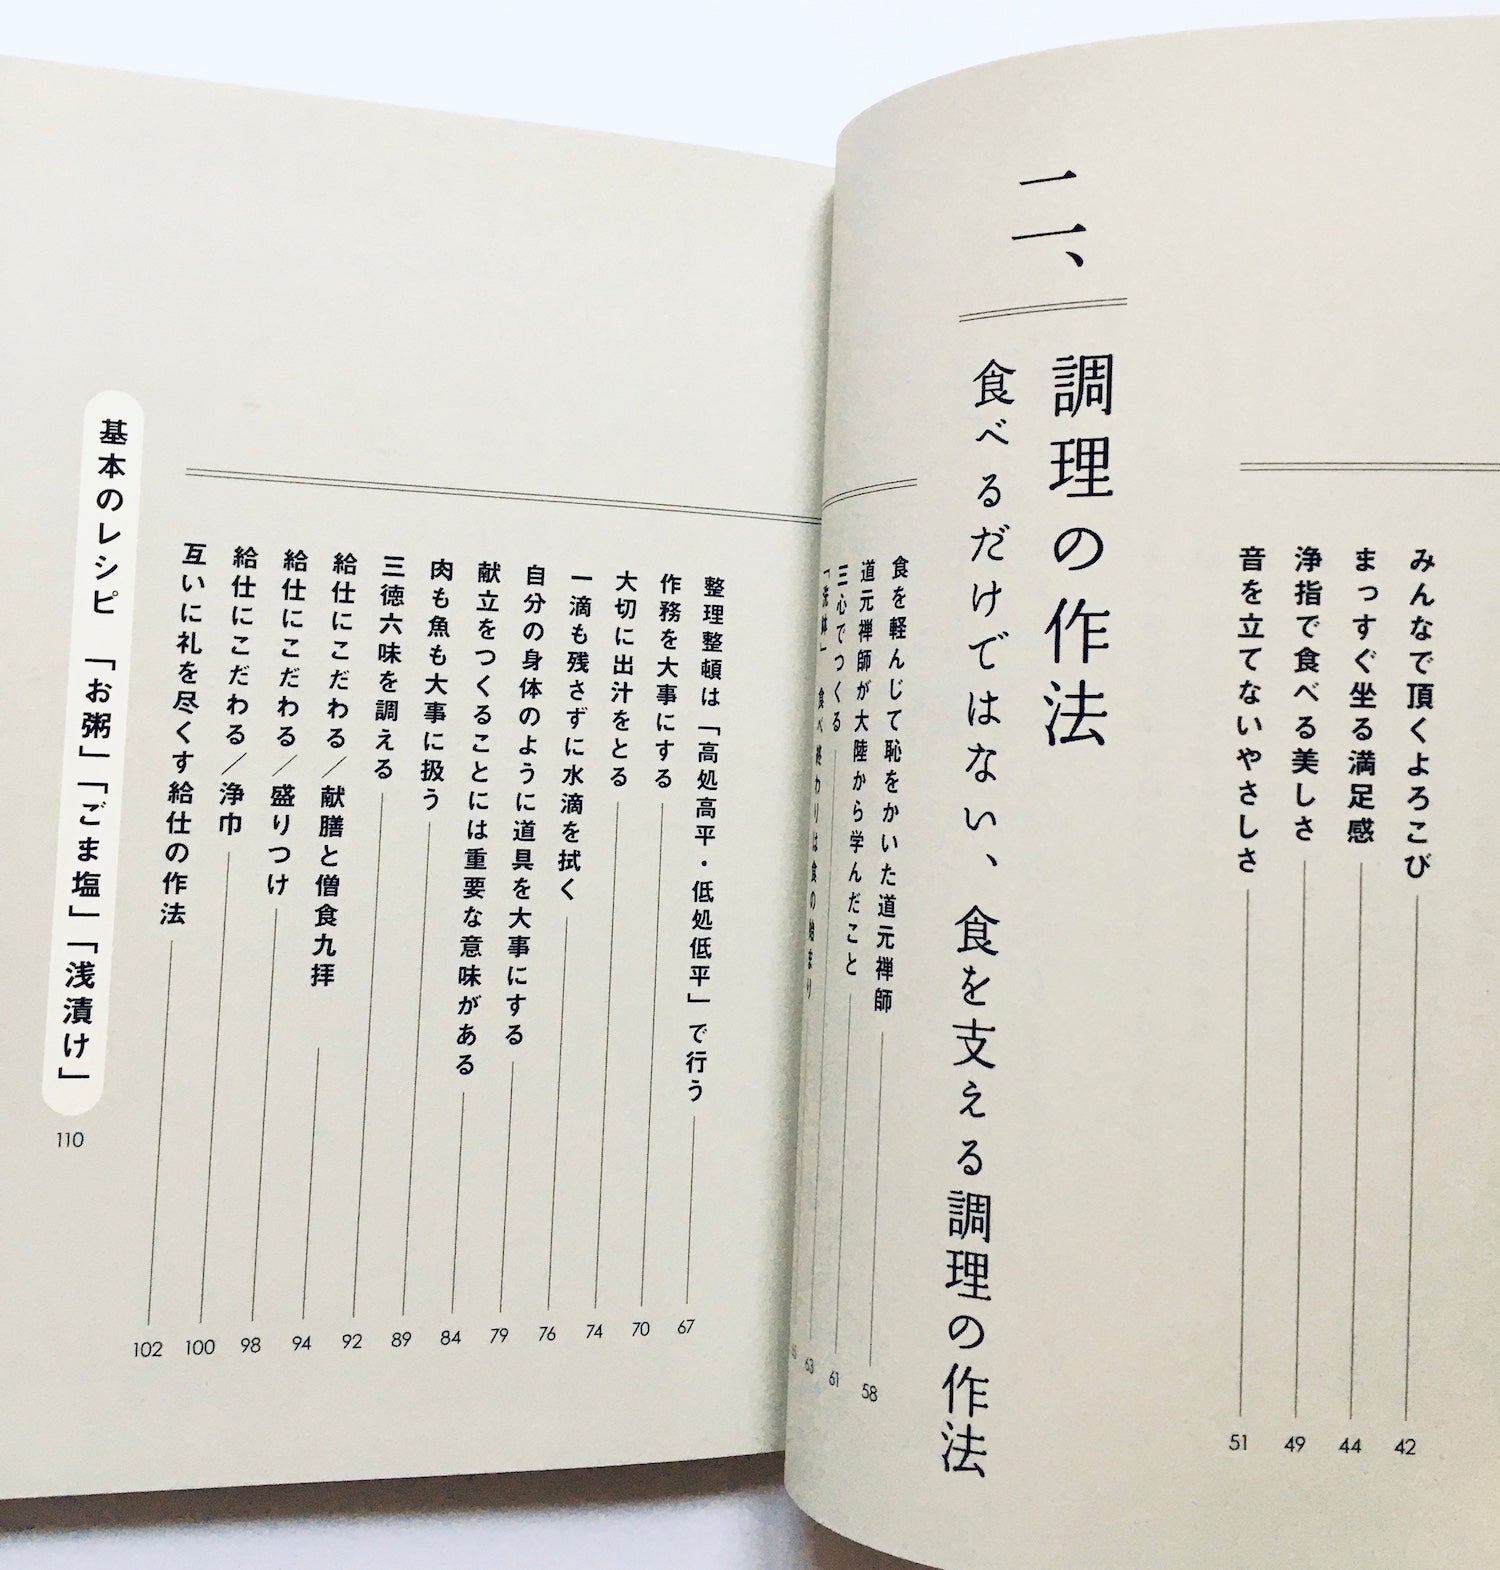 みんなで頂くよろこび 42
まっすぐ坐る満足感 44
浄指で食べる美しさ 49
音を立てないやさしさ 51
二、調理の作法
食べるだけではない、食を支える調理の作法
食を軽んじて恥をかいた道元禅師 58
道元禅師が大陸から学んだこと 61
三心でつくる 63
「洗鉢」食べ終わりは食の始まり
整理整頓は「高処高平・低処低平」で行う 67
作務を大事にする 70
大切に出汁をとる 74
一滴も残さずに水滴を拭く 76
自分の身体のように道具を大事にする 79
献立をつくることには重要な意味がある 84
肉も魚も大事に扱う 89
三徳六味を調える 92
給仕にこだわる／献膳と僧食九拝 94
給仕にこだわる／盛りつけ 98
給仕にこだわる／浄巾 100
互いに礼を尽くす給仕の作法 102
基本のレシピ 「お粥」「ごま塩」「浅漬け」 110